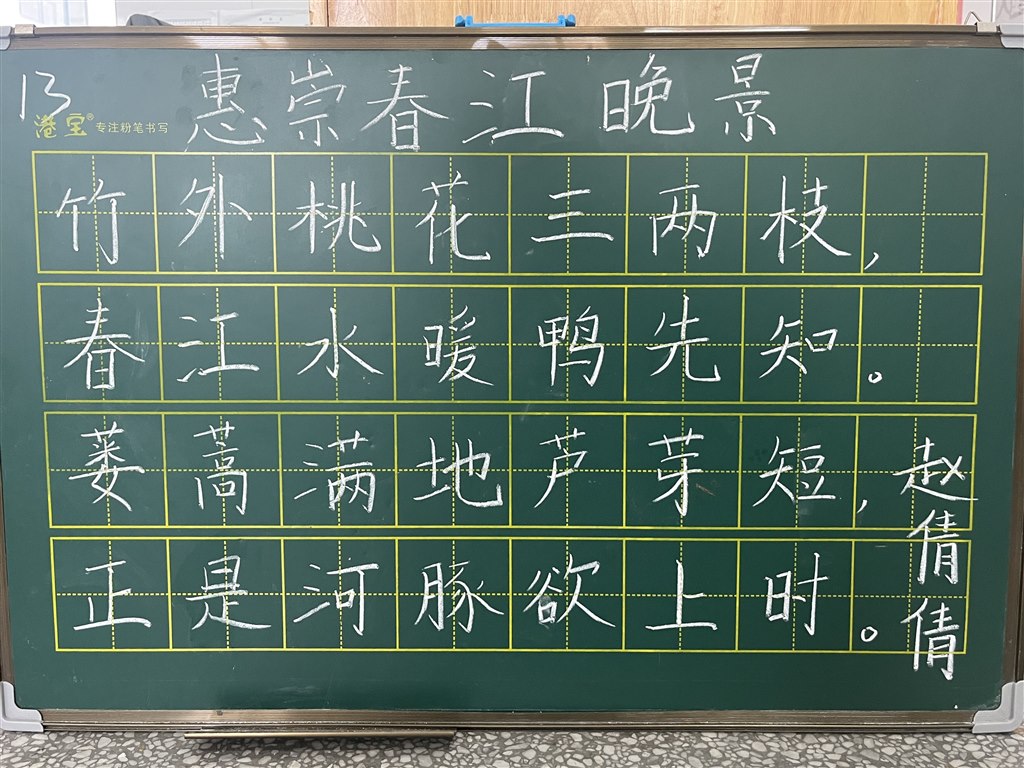 13 惠崇春江晚景
港宝® 专注粉笔书写
竹外桃花三两枝，
春江水暖鸭先知。
蒌蒿满地芦芽短，
正是河豚欲上时。
赵倩倩